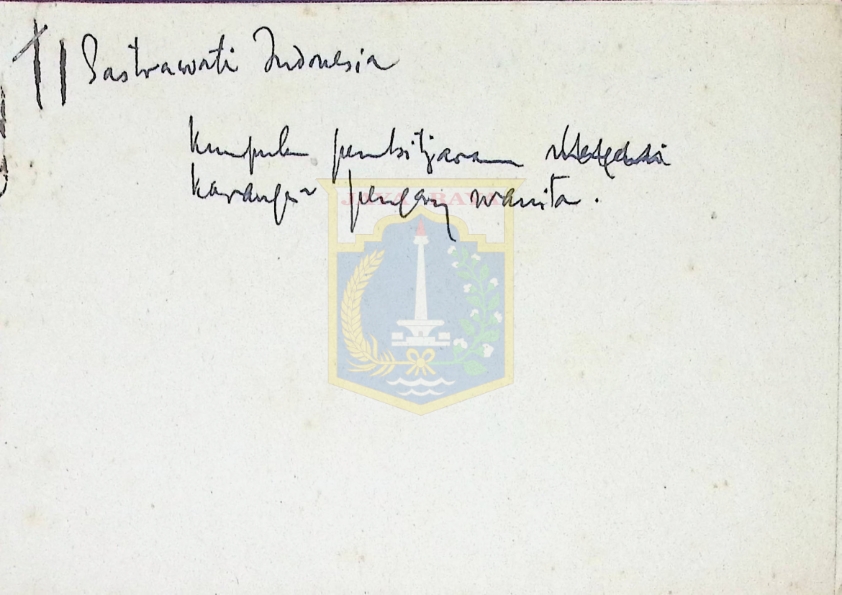 Sastrawati Indonesia
kumpulan pembitjaraan
karangan² pengarang wanita.
JAYA RAYA